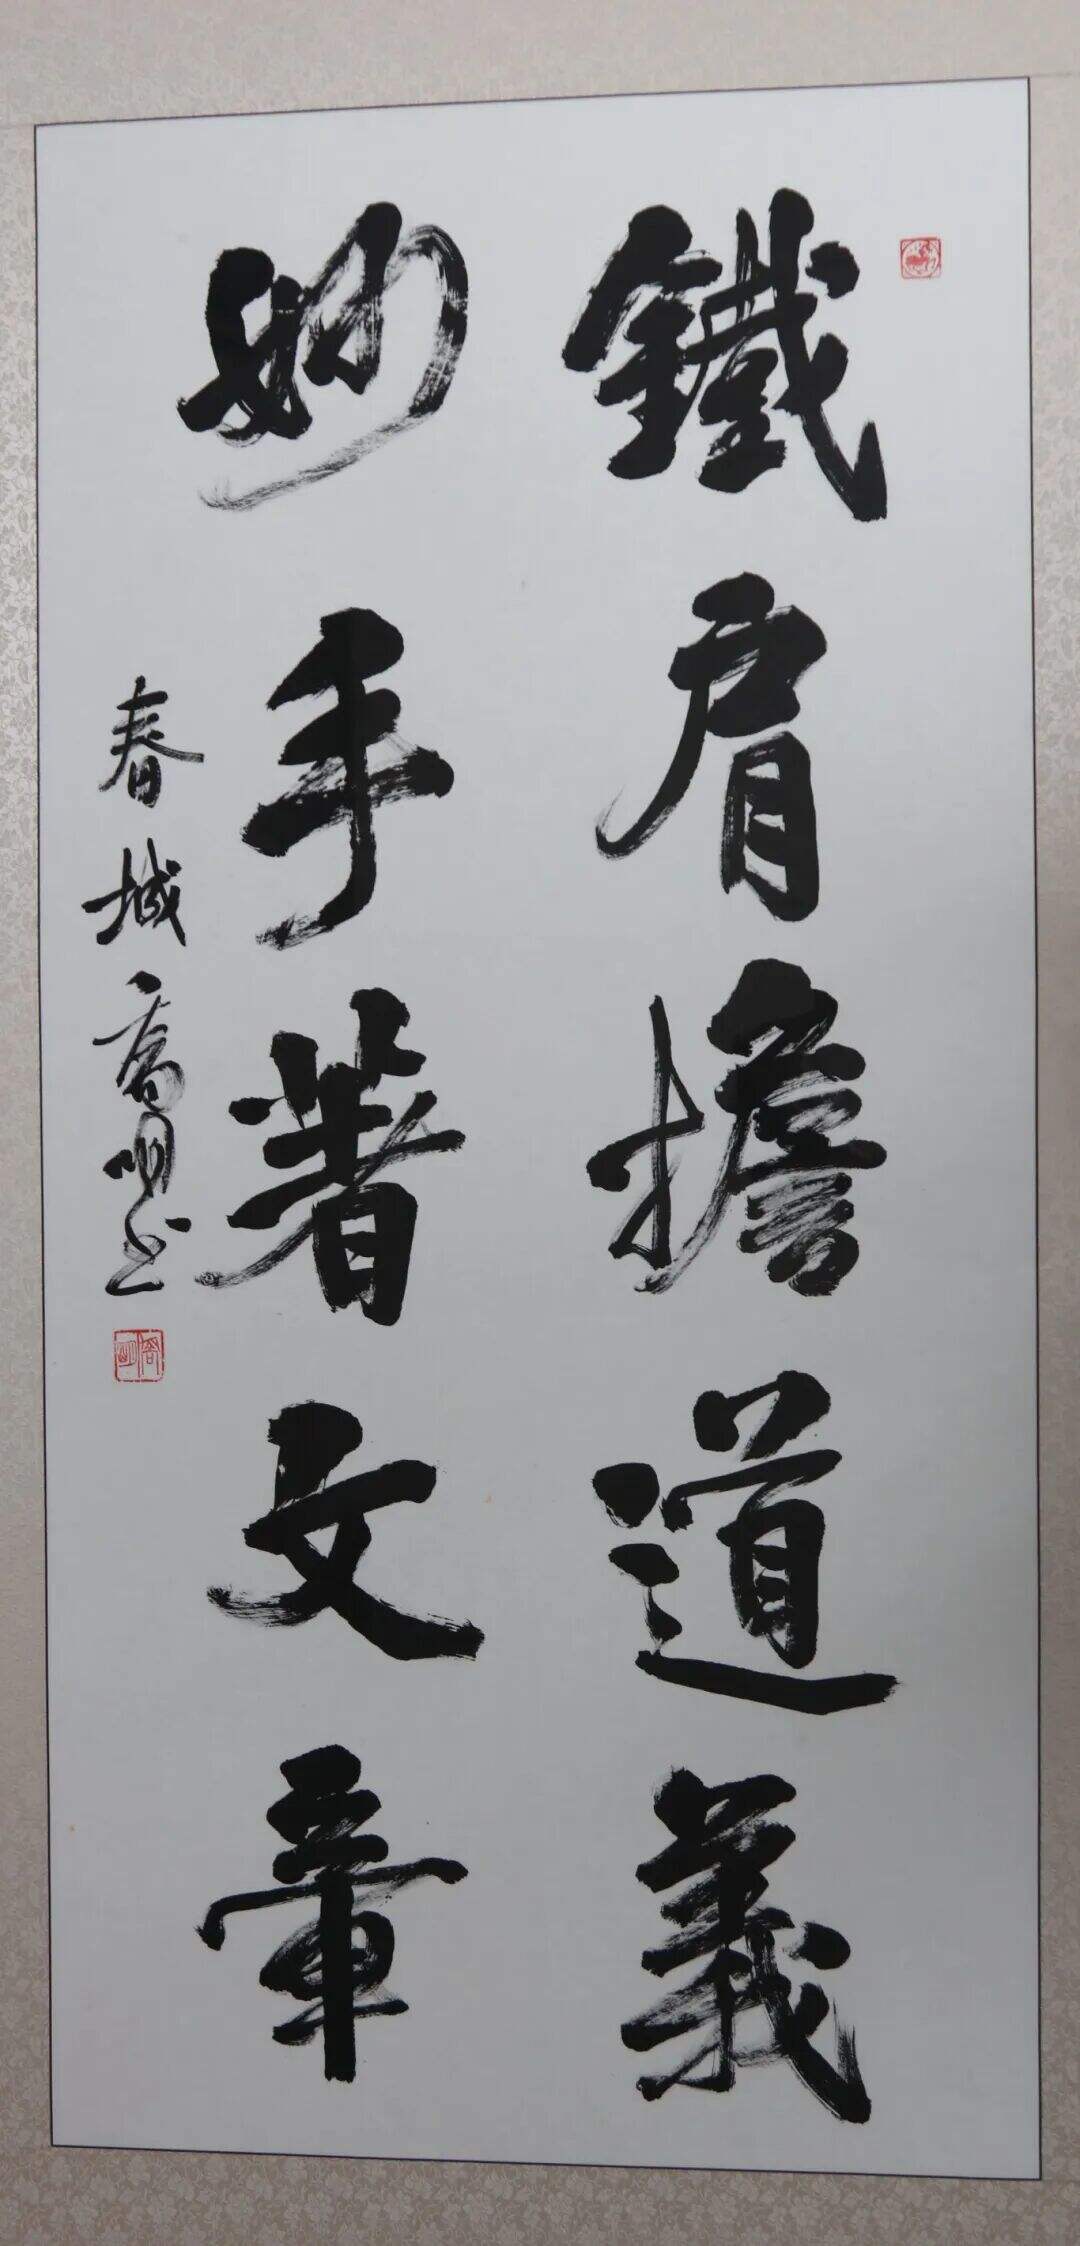 鐵肩擔道義
妙手著文章
春城喬明书